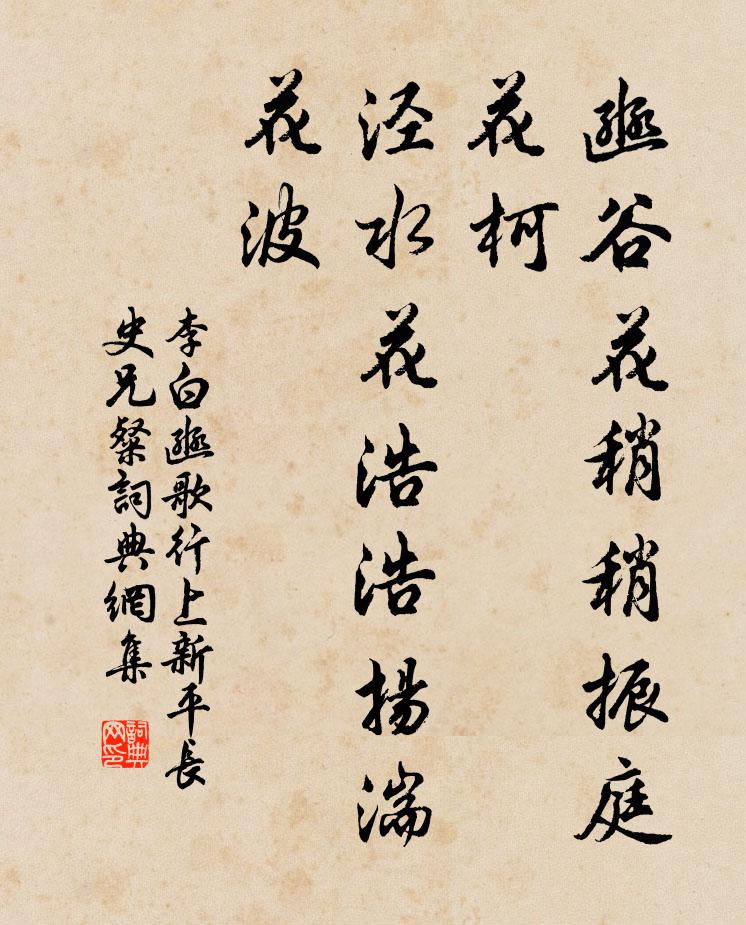 豳谷花稍稍振庭
花柯
泾水花浩浩揚湍
花波
李白豳歌行上新平長
史兄粲詞典網集
詞典
网印